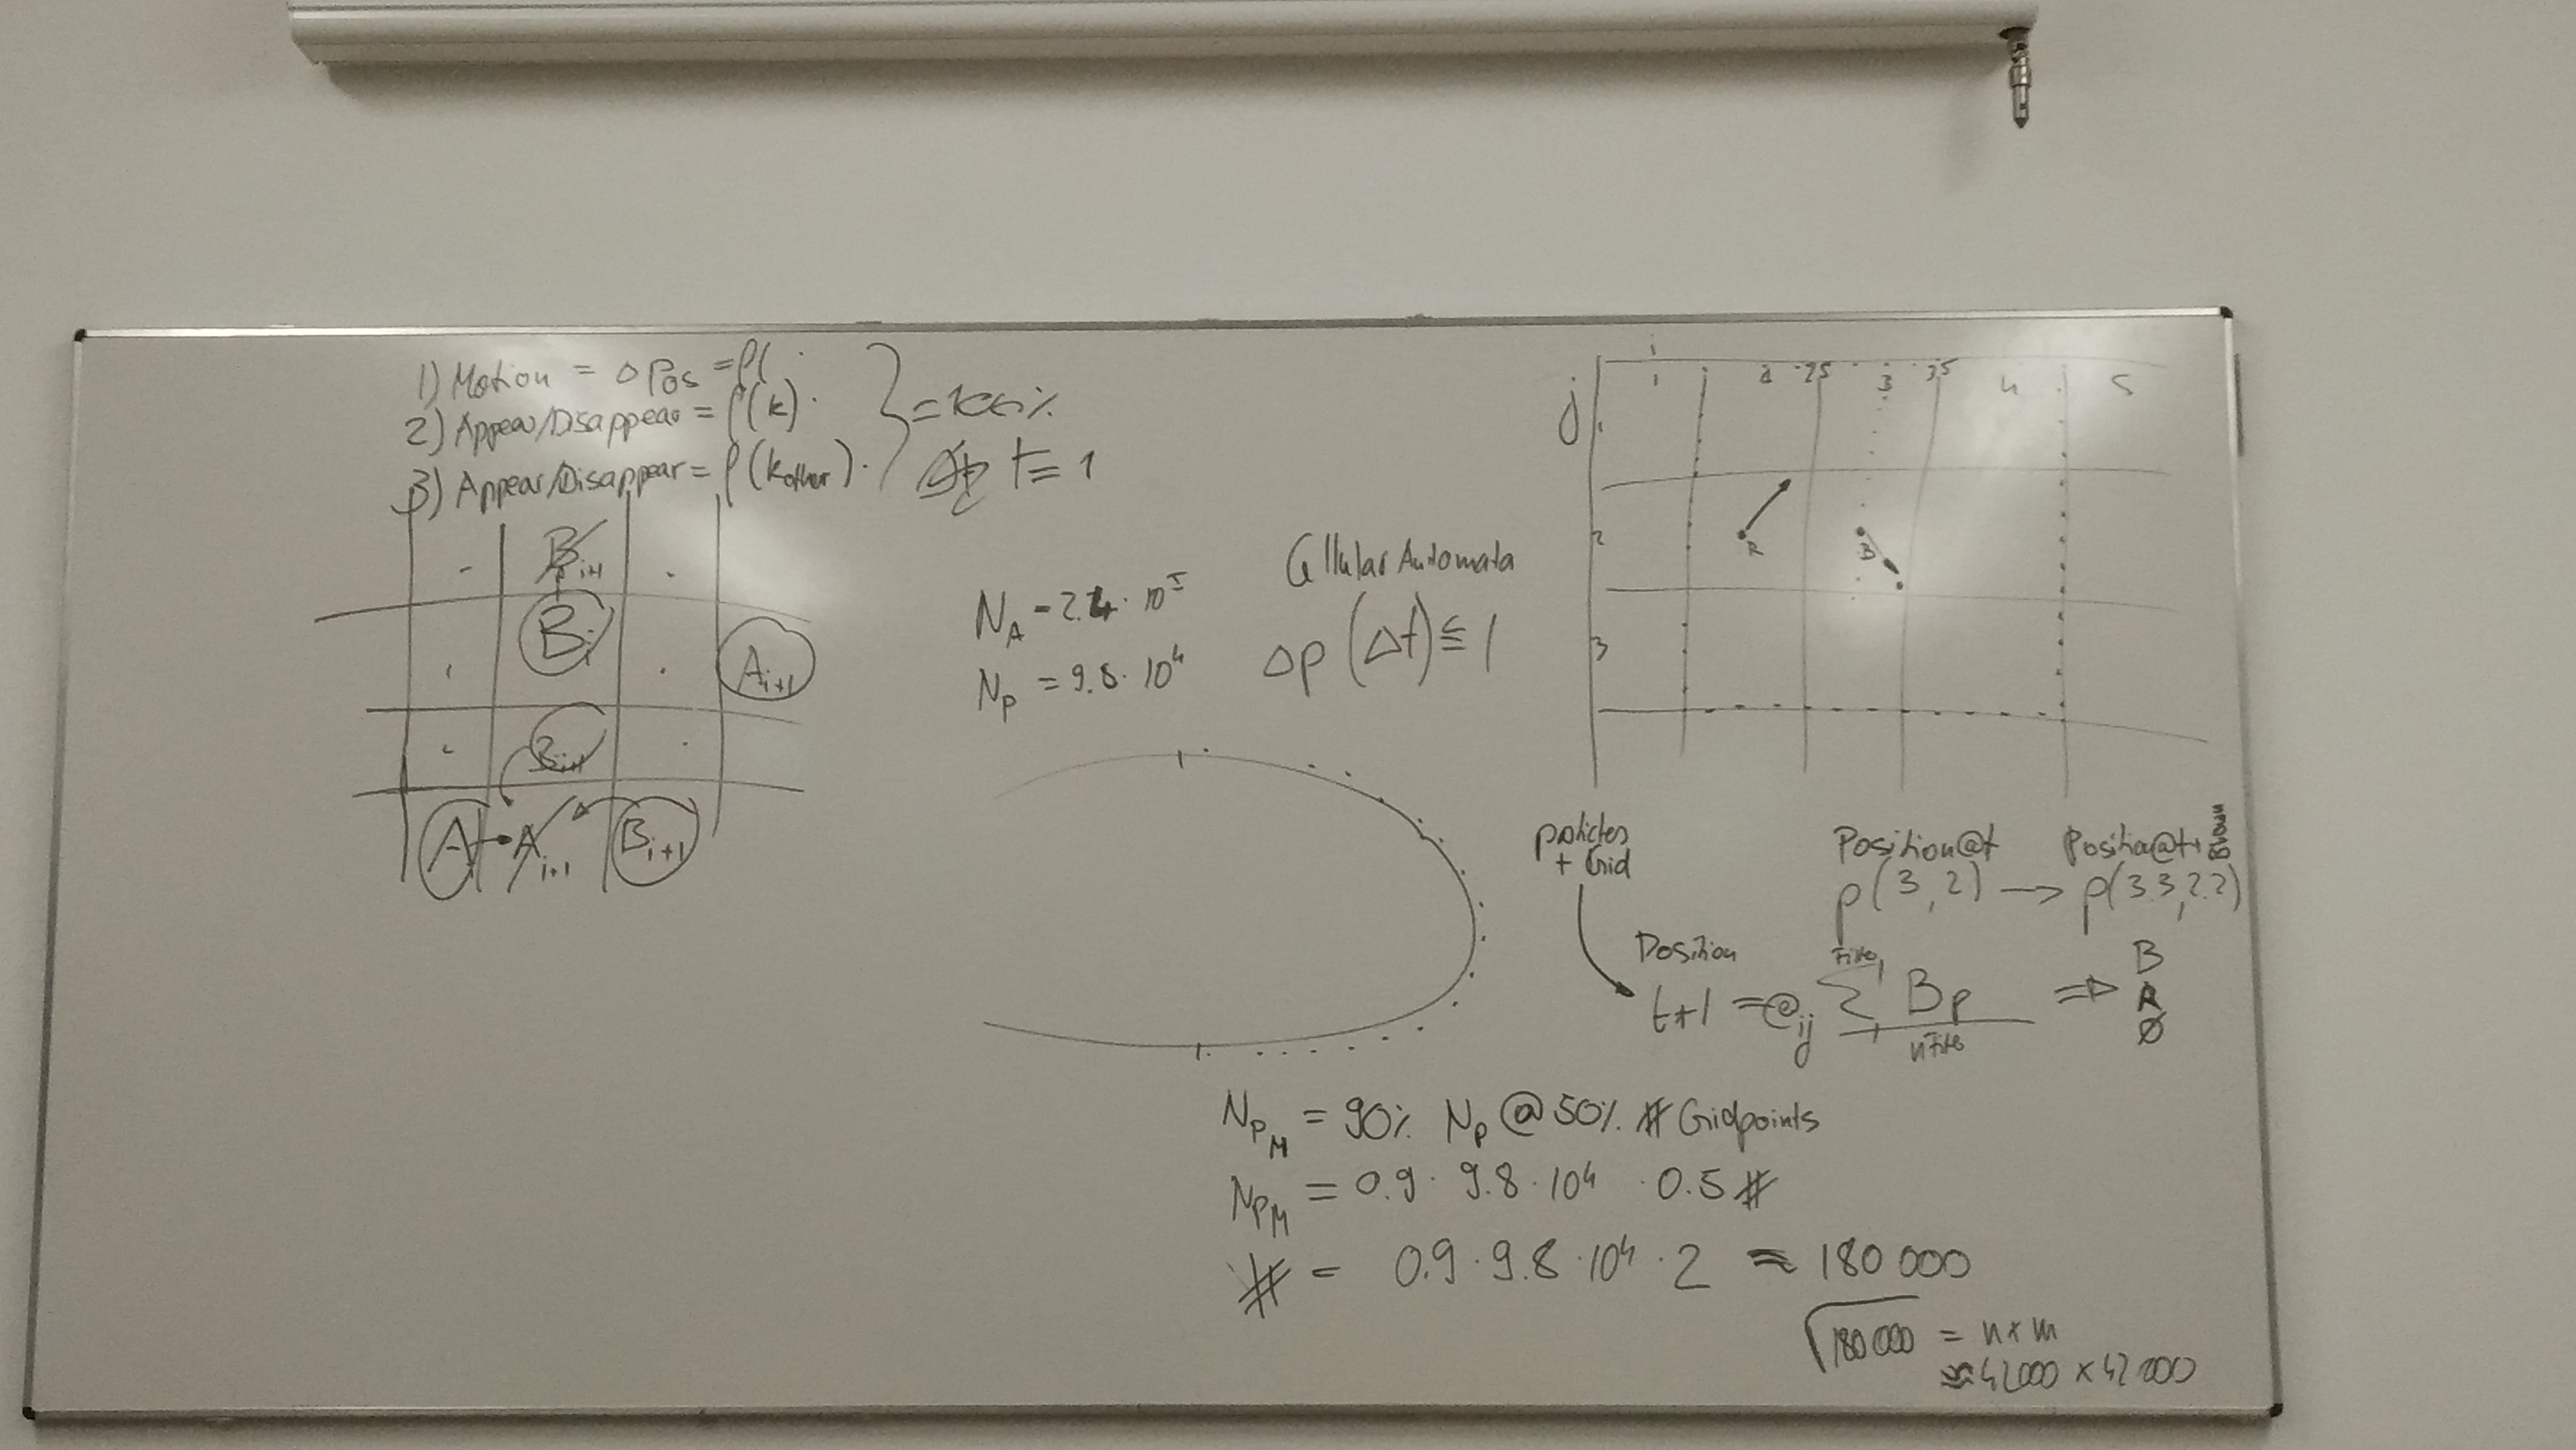 1) Motion = Δ Pos = P(
2) Appear/Disappear = P(k).
3) Appear/Disappear = P(kother).
= 100%
t = 1
B i+1
B i
A i+1
B i+1
A i → A i+1
B i+1
N_A = 2.4 · 10^5
N_P = 9.8 · 10^4
Cellular Automata
Δp (Δt) ≤ 1
i
j
1 2 2.5 3 3.5 4 5
1
2
3
R
B
particles
+ Grid
Position@t
Position@t+1
p(3,2) → p(3.3,2.2)
Position
t+1 = @ij Σ Bp ⇒ B
R
Ø
N_PM = 90% N_P @ 50% # Gridpoints
N_PM = 0.9 · 9.8 · 10^4 · 0.5 #
# = 0.9 · 9.8 · 10^4 · 2 ≈ 180 000
√180 000 = n x m
≈ 42000 x 42000